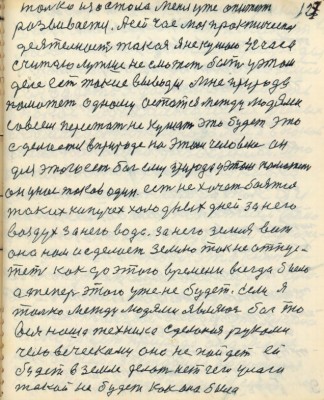 только из остола меня уже опытом 127
развиваести. А сей час моя практическая
деятельность такая я не кушаю 72 часа
считаю лучше не сможет быть у этом
деле есть такие выводы мне природа
поможет одному остаться между людями
совсем перестать не кушать это будет это
сделается в природе на этом человеке он
для этого есть бог ему природа у этом поможет
он у нас таков один. есть не хочет боятся
таких кипучих холодных дней за него
воздух за него вода. за него земля вот
она нам и сделает землю так не отпус-
тет как до этого времени всегда было
а теперь этого уже не будет. если я
только между людями являюсь бог то
вся наша техника сделаная руками
человеческими она не пойдет ей
будет в земле делать нечего у нас
такой не будет как она была